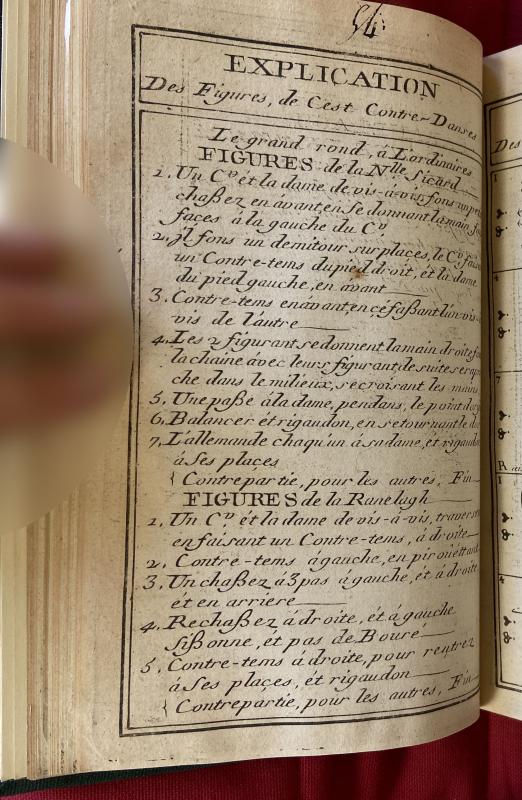 94
EXPLICATION
Des Figures, de Cest Contre-Danses
Le grand rond, à L'ordinaires
FIGURES de la Nlle Sicard
1. Un Cer ét la dame de vis-à-vis, fons un
chaßez en avant, en Se donnant la main,
faces à la gauche du Cer
2. Jl fons un demitour sur places, le Cer
un Contre-tems du pied droit, ét la dame
du pied gauche, en avant
3. Contre-tems enávant, en céfaßant l'un vis-
vis de l'áutre
4. Les 2 figurant se donnent la main droite
la chaine ávec leurs figurant, de suite
che dans le milieux, se croisant les mains
5. Une paße á la dame, pendans, le point
6. Balancer ét rigaudon, en se tournant le
7. L'allemande chaqu'un á sa dame, ét
á Ses places
Contrepartie, pour les autres, Fin
FIGURES de la Ranelugh
1. Un Cer ét la dame de vis-à-vis,
en faisant un Contre-tems, á droite
2. Contre-tems ágauche, en
3. Un chaßez á 3 pas á gauche, ét á droite
ét en arriere
4. Rechaßez á droite, ét á gauche
Sißonne, ét pas de Bouré
5. Contre-tems á droite, pour rentrez
á Ses plaçes, ét rigaudon
Contrepartie, pour les autres, Fin
Des
1
4
7
R
1
4